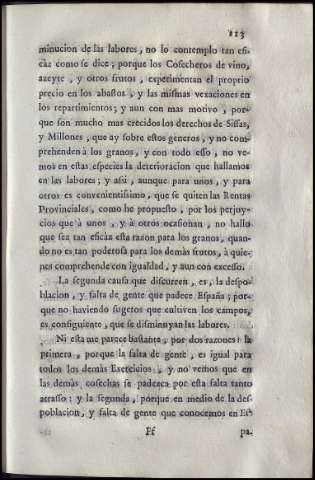 113
minucion de las labores, no lo contemplo tan efi-
càz como se dice; porque los Cosecheros de vino,
azeyte, y otros frutos, experimentan el proprio
precio en los abastos, y las mismas vexaciones en
los repartimientos; y aun con mas motivo, por-
que son mucho mas crecidos los derechos de Sissas,
y Millones, que ay sobre estos generos, y no com-
prehenden à los granos, y con todo esso, no ve-
mos en estas especies la deterioracion que hallamos
en las labores; y assi, aunque para unos, y para
otros es convenientissimo, que se quiten las Rentas
Provinciales, como he propuesto, por los perjuy-
cios que à unos, y à otros ocasionan, no hallo
que sea tan eficàz esta razon para los granos, quan-
do no es tan poderosa para los demàs frutos, à quie-
nes comprehende con igualdad, y aun con excesso.
La segunda causa que discurren, es, la despo-
blacion, y falta de gente que padece España; por-
que no haviendo sugetos que cultiven los campos,
es consiguiente, que se disminuyan las labores.
Ni esta me parece bastante, por dos razones: la
primera, porque la falta de gente, es igual para
todos los demàs Exercicios, y no vemos que en
las demàs cosechas se padezca por esta falta tanto
atrasso; y la segunda, porque en medio de la des-
poblacion, y falta de gente que conocemos en Es-
Ff
pa-